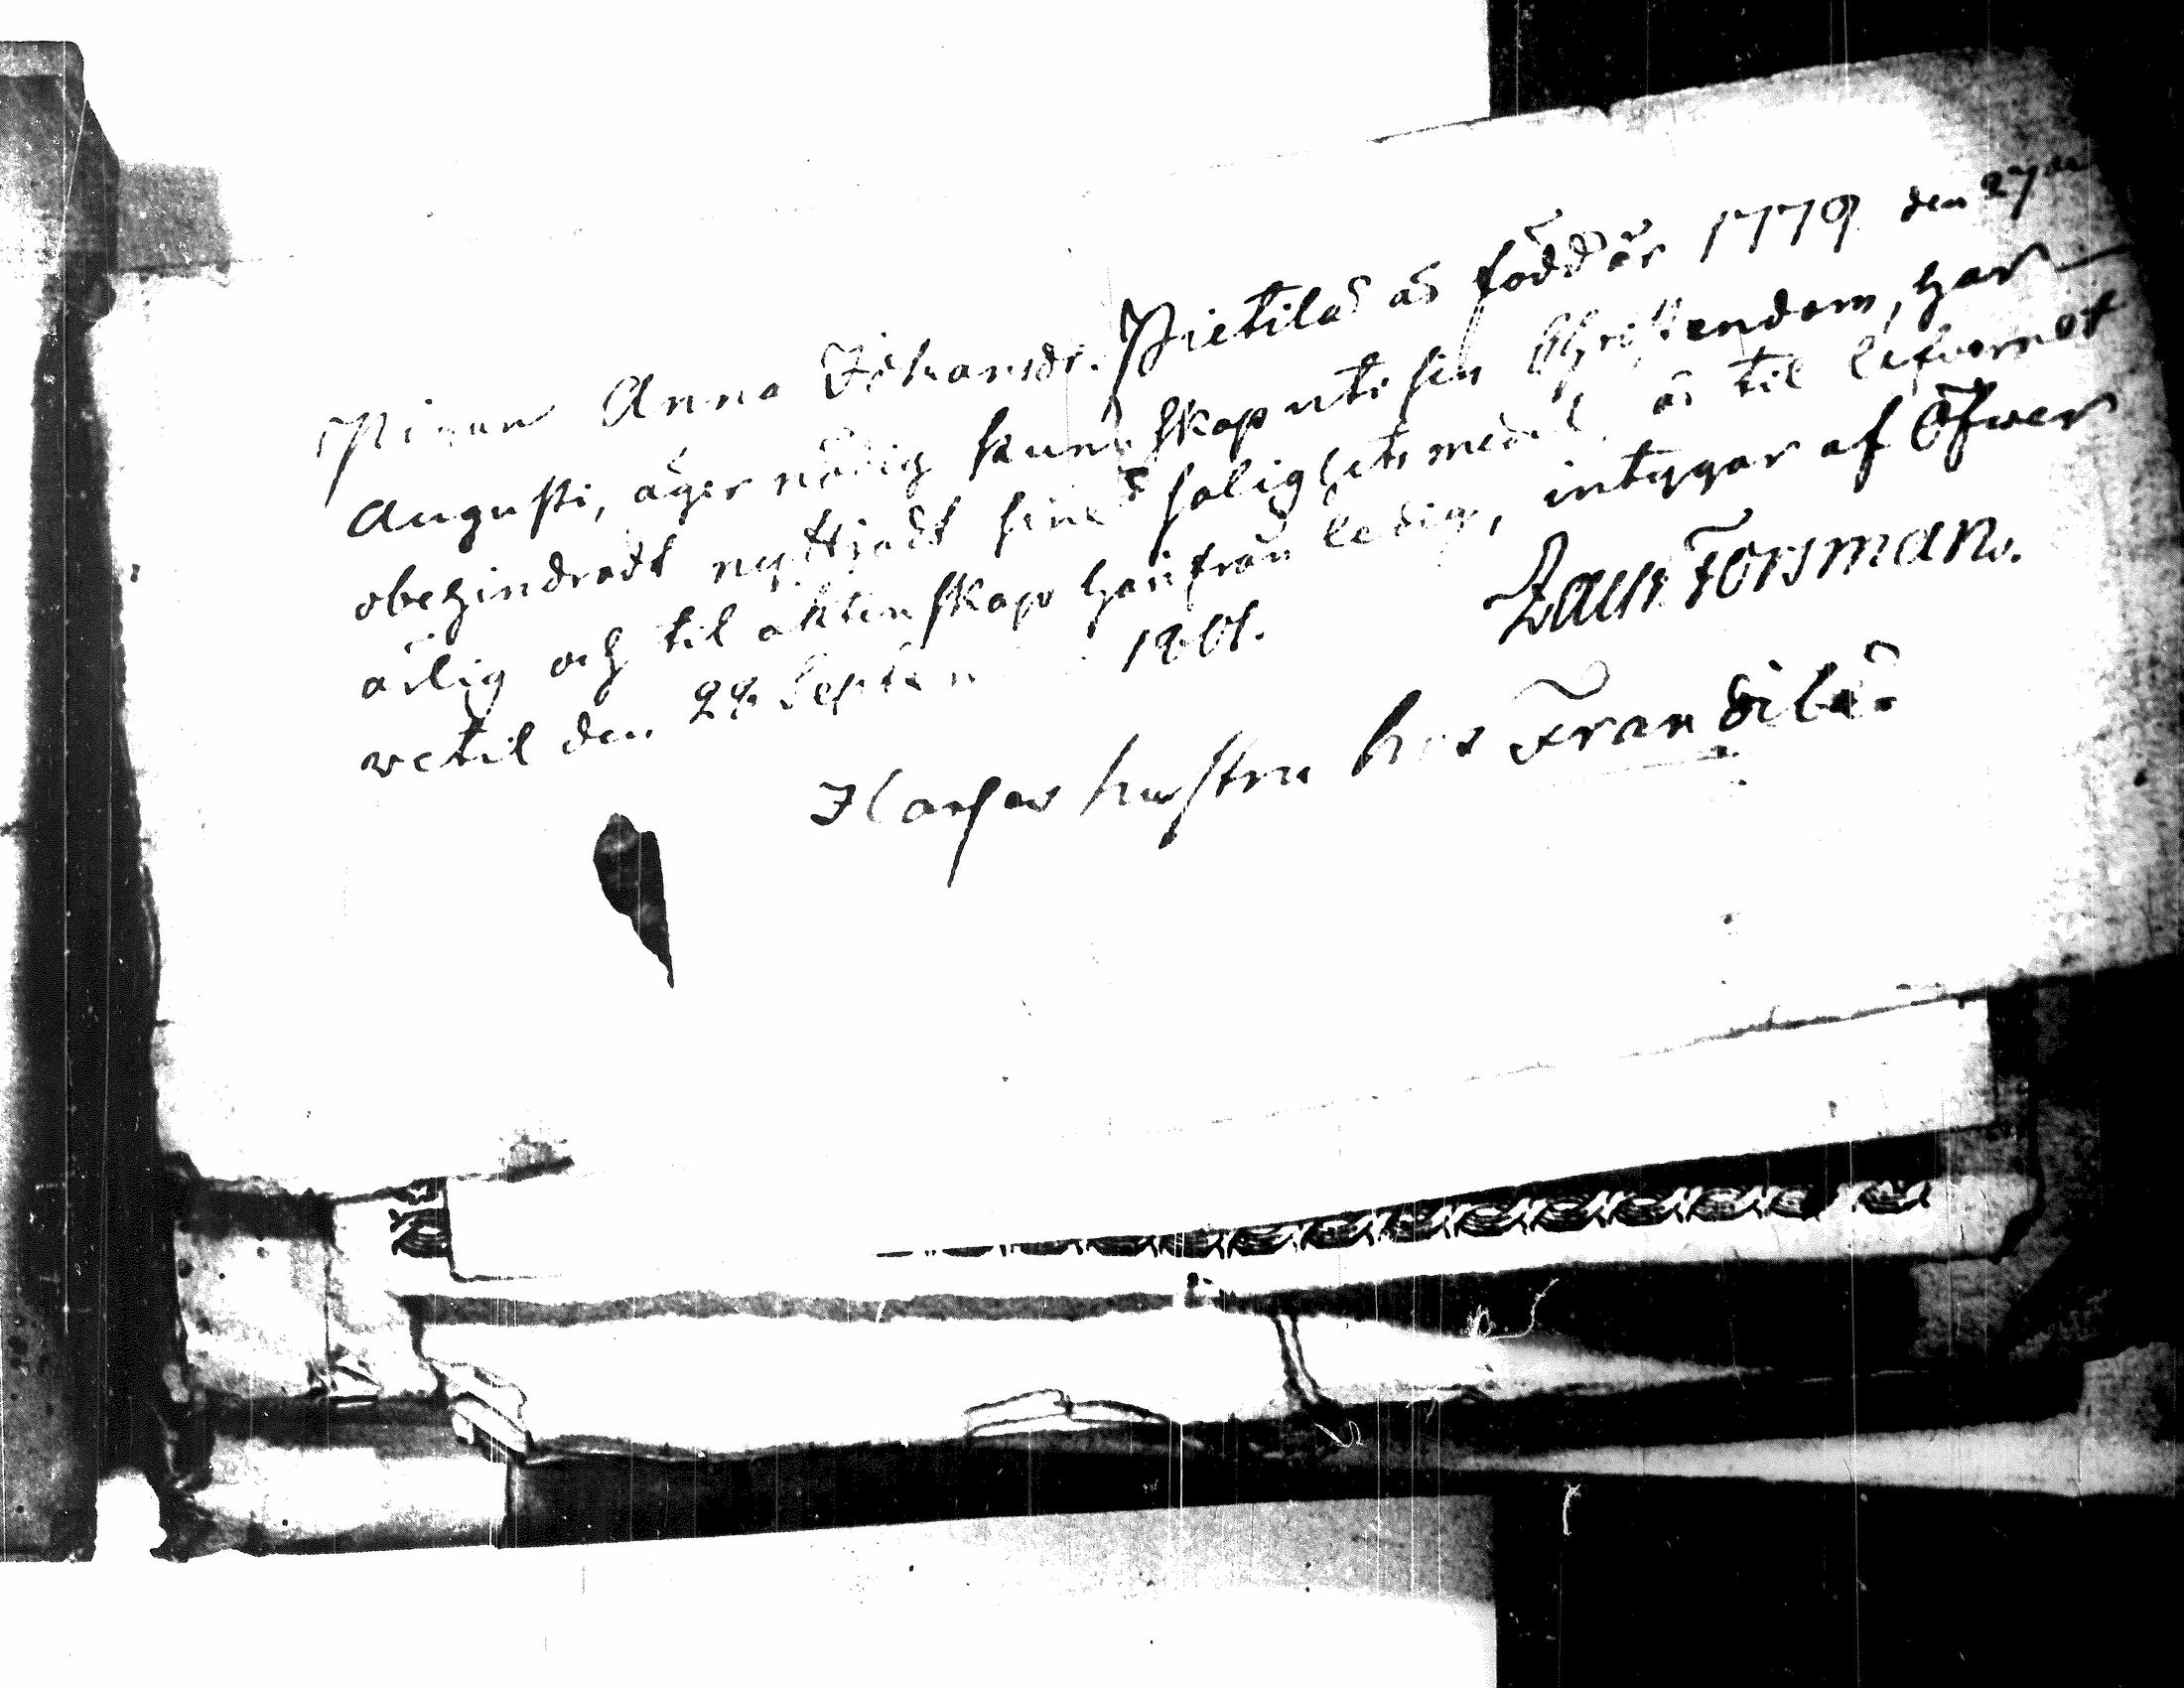 Pigan Anna Johansdr. Pietilä är född år 1779 den 27de
Augusti, äger nödig kunnskap uti sin Christendom, har
obehindradt nyttjadt sine salighets medel, är til lefvernet
ärlig och til äktenskap härifrån ledig, intygar af Öfwer
vetil den 28 Septem 1801. Zach. Forsman.
hustru hos Frandilä.